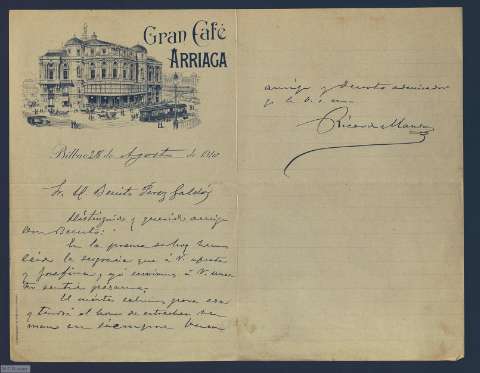 Gran Café
ARRIAGA
Bilbao 28 de Agosto de 1910
Sr. D. Benito Pérez Galdós
Distinguido y querido amigo
Don Benito:
En la prensa de hoy hemos
leído la desgracia que á V. aflige
y Josefina y yo enviamos á V. nuestro
sentido pésame.
El martes salimos para esa
y tendré el honor de estrechar su
mano
amigo y devoto admirador
q. l. b. l. m.
Ricardo